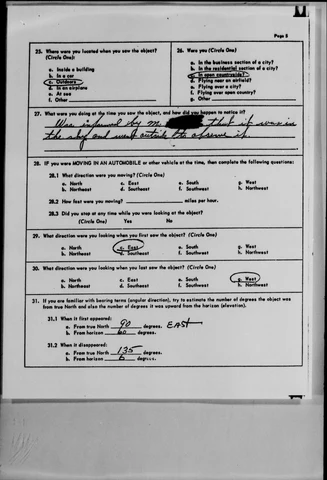 Page 5
25. Where were you located when you saw the object?
(Circle One):
a. Inside a building
b. In a car
c. Outdoors
d. In an airplane
e. At sea
f. Other
26. Were you (Circle One)
a. In the business section of a city?
b. In the residential section of a city?
c. In open countryside?
d. Flying near an airfield?
e. Flying over a city?
f. Flying over open country?
g. Other
27. What were you doing at the time you saw the object, and how did you happen to notice it?
Was informed by m that it was in
the sky and went outside to observe it.
28. IF you were MOVING IN AN AUTOMOBILE or other vehicle at the time, then complete the following questions:
28.1 What direction were you moving? (Circle One)
a. North c. East e. South g. West
b. Northeast d. Southeast f. Southwest h. Northwest
28.2 How fast were you moving? miles per hour.
28.3 Did you stop at any time while you were looking at the object?
(Circle One) Yes No
29. What direction were you looking when you first saw the object? (Circle One)
a. North c. East e. South g. West
b. Northeast d. Southeast f. Southwest h. Northwest
30. What direction were you looking when you last saw the object? (Circle One)
a. North c. East e. South g. West
b. Northeast d. Southeast f. Southwest h. Northwest
31. If you are familiar with bearing terms (angular direction), try to estimate the number of degrees the object was
from true North and also the number of degrees it was upward from the horizon (elevation).
31.1 When it first appeared:
a. From true North 90 degrees. EAST
b. From horizon 60 degrees.
31.2 When it disappeared:
a. From true North 135 degrees.
b. From horizon 0 degrees.